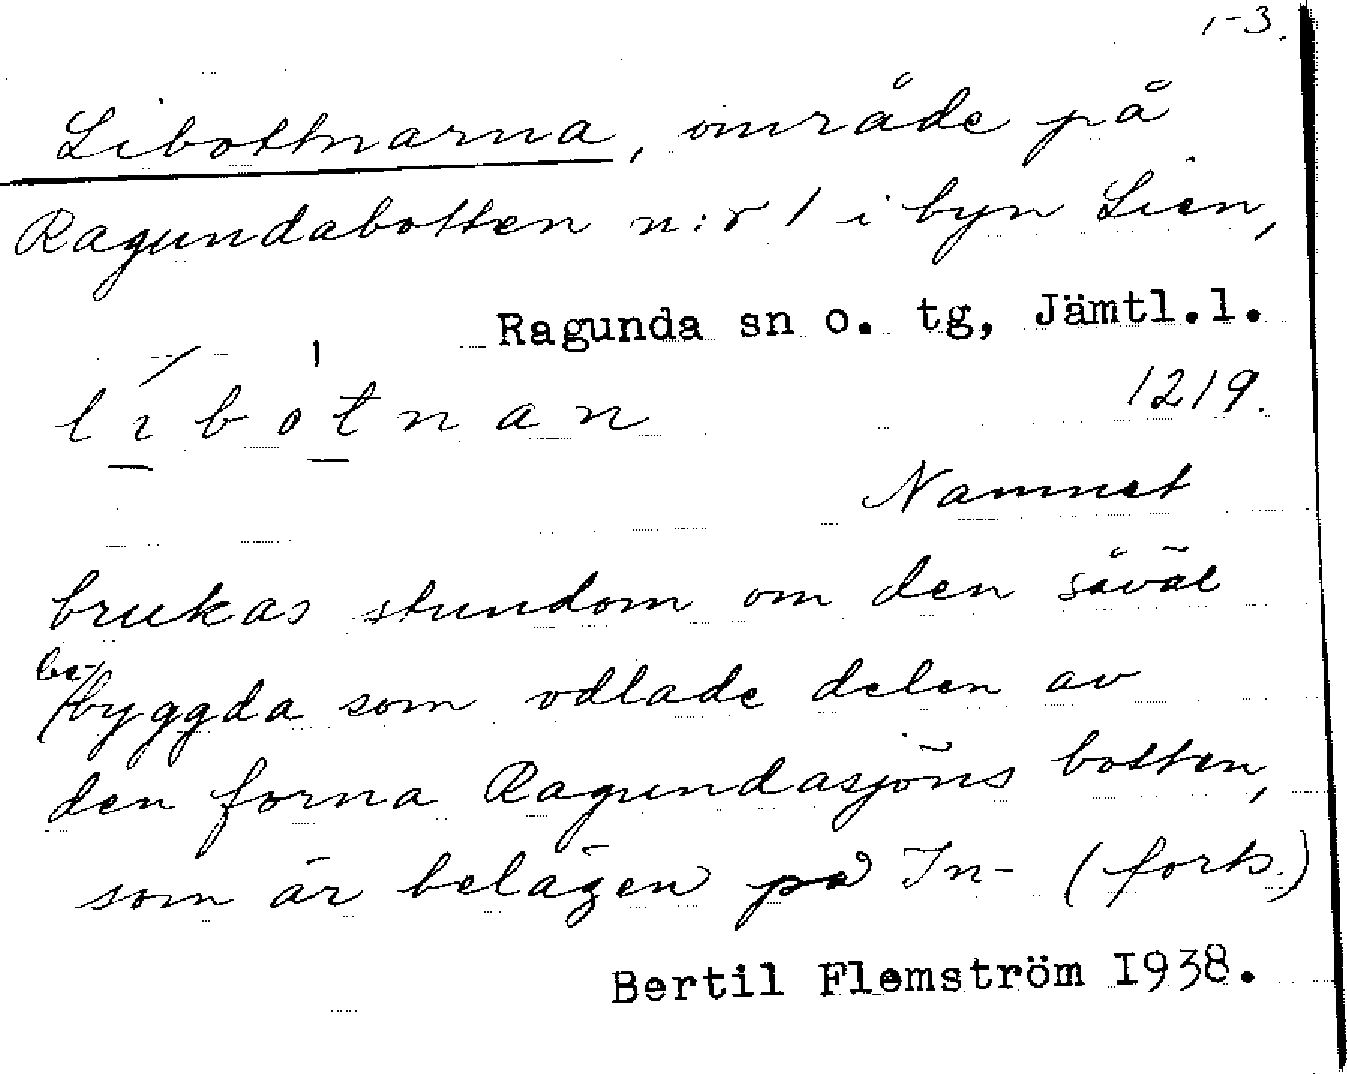 1-3.
Libottnarna, område på
Ragundabotten n:r 1 i byn Lien,
Ragunda sn o. tg, Jämtl.l.
líbòtnan
1219.
Namnet
brukas stundom om den såväl
bebyggda som odlade delen av
den forna Ragundasjöns botten,
som är belägen på In- (forts.)
Bertil Flemström 1938.